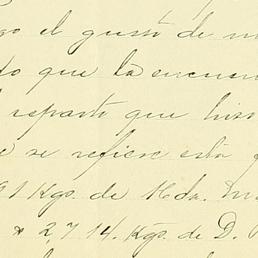 go el gusto de m
do que la encuen
l reparto que hiso
e se refiere está
91 Kgs. de Hda.
2,714. Kgs. de D.